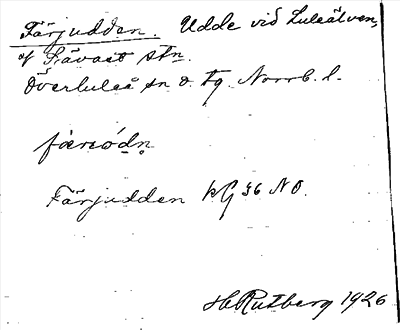 Färjudden. Udde vid Luleälven,
vf Sävast stn.
Överluleå sn o. tg. Norrb. l.
Färjudden kG 36 NO.
H Rutberg 1926